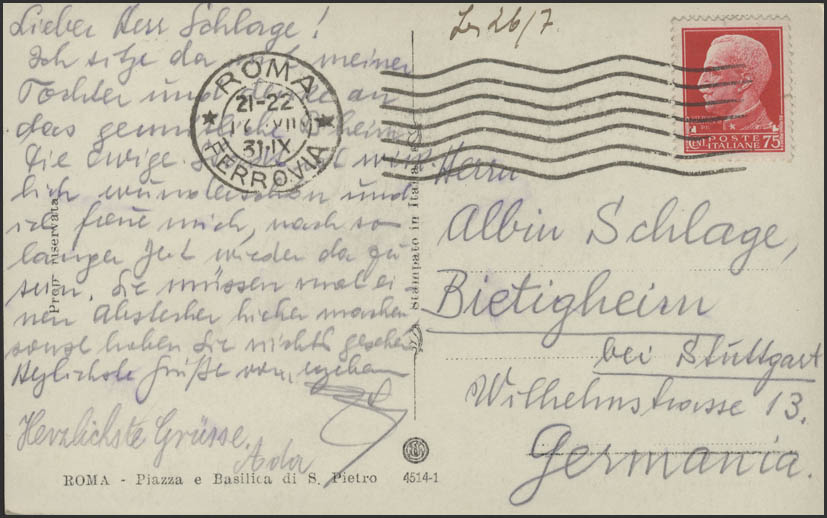 Lieber Herr Schlage!
Ich sitze da mit meiner
Tochter und an
das gemütliche heim.
Die ewige Stadt ist wirk-
lich wunderschön und
ich freue mich, nach so
langer Zeit wieder da zu
sein. Sie müssen mal ei-
nen Abstecher hieher machen
sonst haben Sie nichts gesehen
Herzlichste Grüße von
Herzlichste Grüsse.
Ada
ROMA - Piazza e Basilica di S. Pietro 4514-1
Prop. riservata
Stampato in Italia
26/7.
ROMA
21-22
31.IX
FERROVIA
POSTE
ITALIANE
CENT 75
Herrn
Albin Schlage,
Bietigheim
bei Stuttgart
Wilhelmstrasse 13.
Germania.